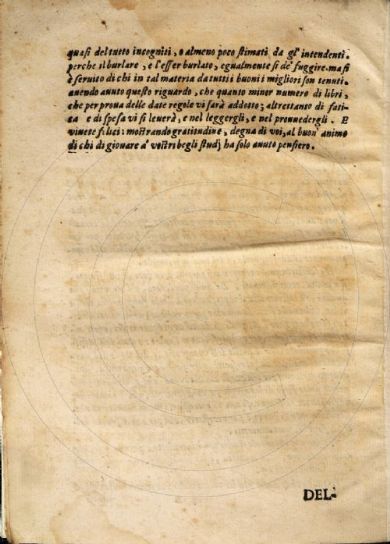 quasi del tutto incogniti, o almeno poco stimati da gl' intendenti.
perche il burlare, e l'esser burlato, egualmente si de' fuggire. ma si
è seruito di chi in tal materia da tutti i buoni i migliori son tenuti.
auendo auuto questo riguardo, che quanto minor numero di libri,
che per proua delle date regole vi sarà addotto; altrettanto di fati-
ca e di spesa vi si leuerà, e nel leggergli, e nel prouuedergli. E
viuete felici: mostrando gratitudine, degna di voi, al buon' animo
di chi di giouare a' vostri begli studj ha solo auuto pensiero.
DEL-